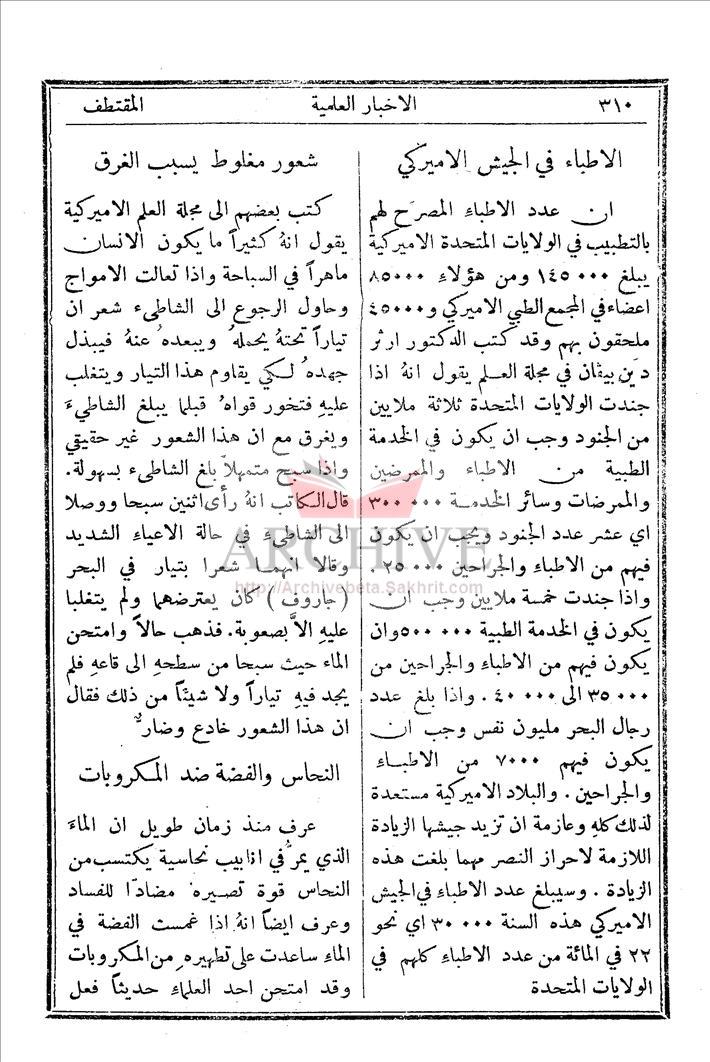 ٣١٠
الاخبار العلمية
المقتطف
الاطباء في الجيش الاميركي
ان عدد الاطباء المصرح لهم
بالتطبيب في الولايات المتحدة الاميركية
يبلغ ١٤٥٠٠٠ ومن هؤلاء ٨٥٠٠٠
اعضاء في المجمع الطبي الاميركي و٤٥٠٠٠
ملحقون بهم وقد كتب الدكتور ارثر
دين بيفان في مجلة العلم يقول انهُ اذا
جندت الولايات المتحدة ثلاثة ملايين
من الجنود وجب ان يكون في الخدمة
الطبية من الاطباء والممرضين
والممرضات وسائر الخدمة ٣٠٠٠٠٠
اي عشر عدد الجنود ويجب ان يكون
فيهم من الاطباء والجراحين ٢٥٠٠٠ .
واذا جندت خمسة ملايين وجب ان
يكون في الخدمة الطبية ٥٠٠٠٠٠ وان
يكون فيهم من الاطباء والجراحين من
٣٥٠٠٠ الى ٤٠٠٠٠ . واذا بلغ عدد
رجال البحر مليون نفس وجب ان
يكون فيهم ٧٠٠٠ من الاطباء
والجراحين . والبلاد الاميركية مستعدة
لذلك كلهِ وعازمة ان تزيد جيشها الزيادة
اللازمة لاحراز النصر مهما بلغت هذه
الزيادة . وسيبلغ عدد الاطباء في الجيش
الاميركي هذه السنة ٣٠٠٠٠ اي نحو
٢٢ في المائة من عدد الاطباء كلهم في
الولايات المتحدة
شعور مغلوط يسبب الغرق
كتب بعضهم الى مجلة العلم الاميركية
يقول انهُ كثيراً ما يكون الانسان
ماهراً في السباحة واذا تعالت الامواج
وحاول الرجوع الى الشاطىء شعر ان
تياراً تحتهُ يحملهُ ويبعده عنهُ فيبذل
جهدهُ لكي يقاوم هذا التيار ويتغلب
عليهِ فتخور قواهُ قبلما يبلغ الشاطىءَ
ويغرق مع ان هذا الشعور غير حقيقي
واذا سبح متمهلاً بلغ الشاطىء بسهولة .
قال الكاتب انهُ رأى اثنين سبحا ووصلا
الى الشاطىء في حالة الاعياء الشديد
وقالا انهما شعرا بتيار في البحر
(جاروف) كان يعترضهما ولم يتغلبا
عليهِ الاَّ بصعوبة . فذهب حالاً وامتحن
الماء حيث سبحا من سطحهِ الى قاعهِ فلم
يجد فيهِ تياراً ولا شيئاً من ذلك فقال
ان هذا الشعور خادع وضارٌّ
النحاس والفضة ضد المكروبات
عرف منذ زمان طويل ان الماءَ
الذي يمرُّ في انابيب نحاسية يكتسب من
النحاس قوة تصيره مضادًا للفساد
وعرف ايضاً انهُ اذا غمست الفضة في
الماء ساعدت على تطهيرهِ من المكروبات
وقد امتحن احد العلماء حديثاً فعل
ARCHIVE
http://Archivebeta.Sakhrit.com